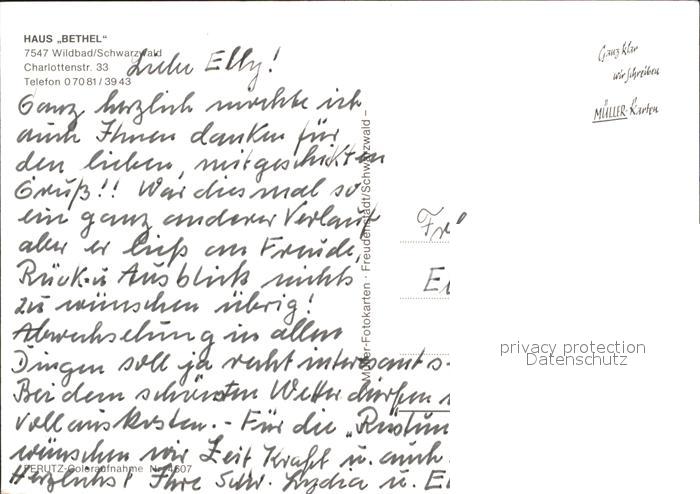 HAUS „BETHEL"
7547 Wildbad/Schwarzwald
Charlottenstr. 33
Telefon 0 70 81 / 39 43
Liebe Elly!
Ganz herzlich möchte ich
auch Ihnen danken für
den lieben, mitgeschickten
Gruß!! War diesmal so
ein ganz anderer Verlauf
aber er ließ an Freude,
Rück- u Ausblick nichts
zu wünschen übrig!
Abwechselung in allen
Dingen soll ja recht interessant s-
Bei dem schönsten Wetter dürfen
voll auskosten. - Für die „Rüstun
wünschen wir Zeit Kraft u. auch
Herzlichst Ihre Schw. Lydia u. El
PERUTZ-Coloraufnahme Nr. 4607
Müller-Fotokarten · Freudenstadt/Schwarzwald –
Ganz klar
wir schreiben
MÜLLER-Karten
Fr
privacy protection
Datenschutz